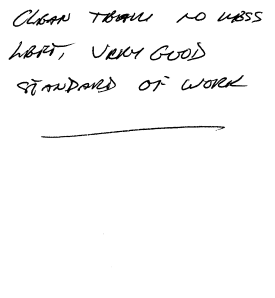 CLEAN TEAM NO MESS
LEFT, VERY GOOD
STANDARD OF WORK